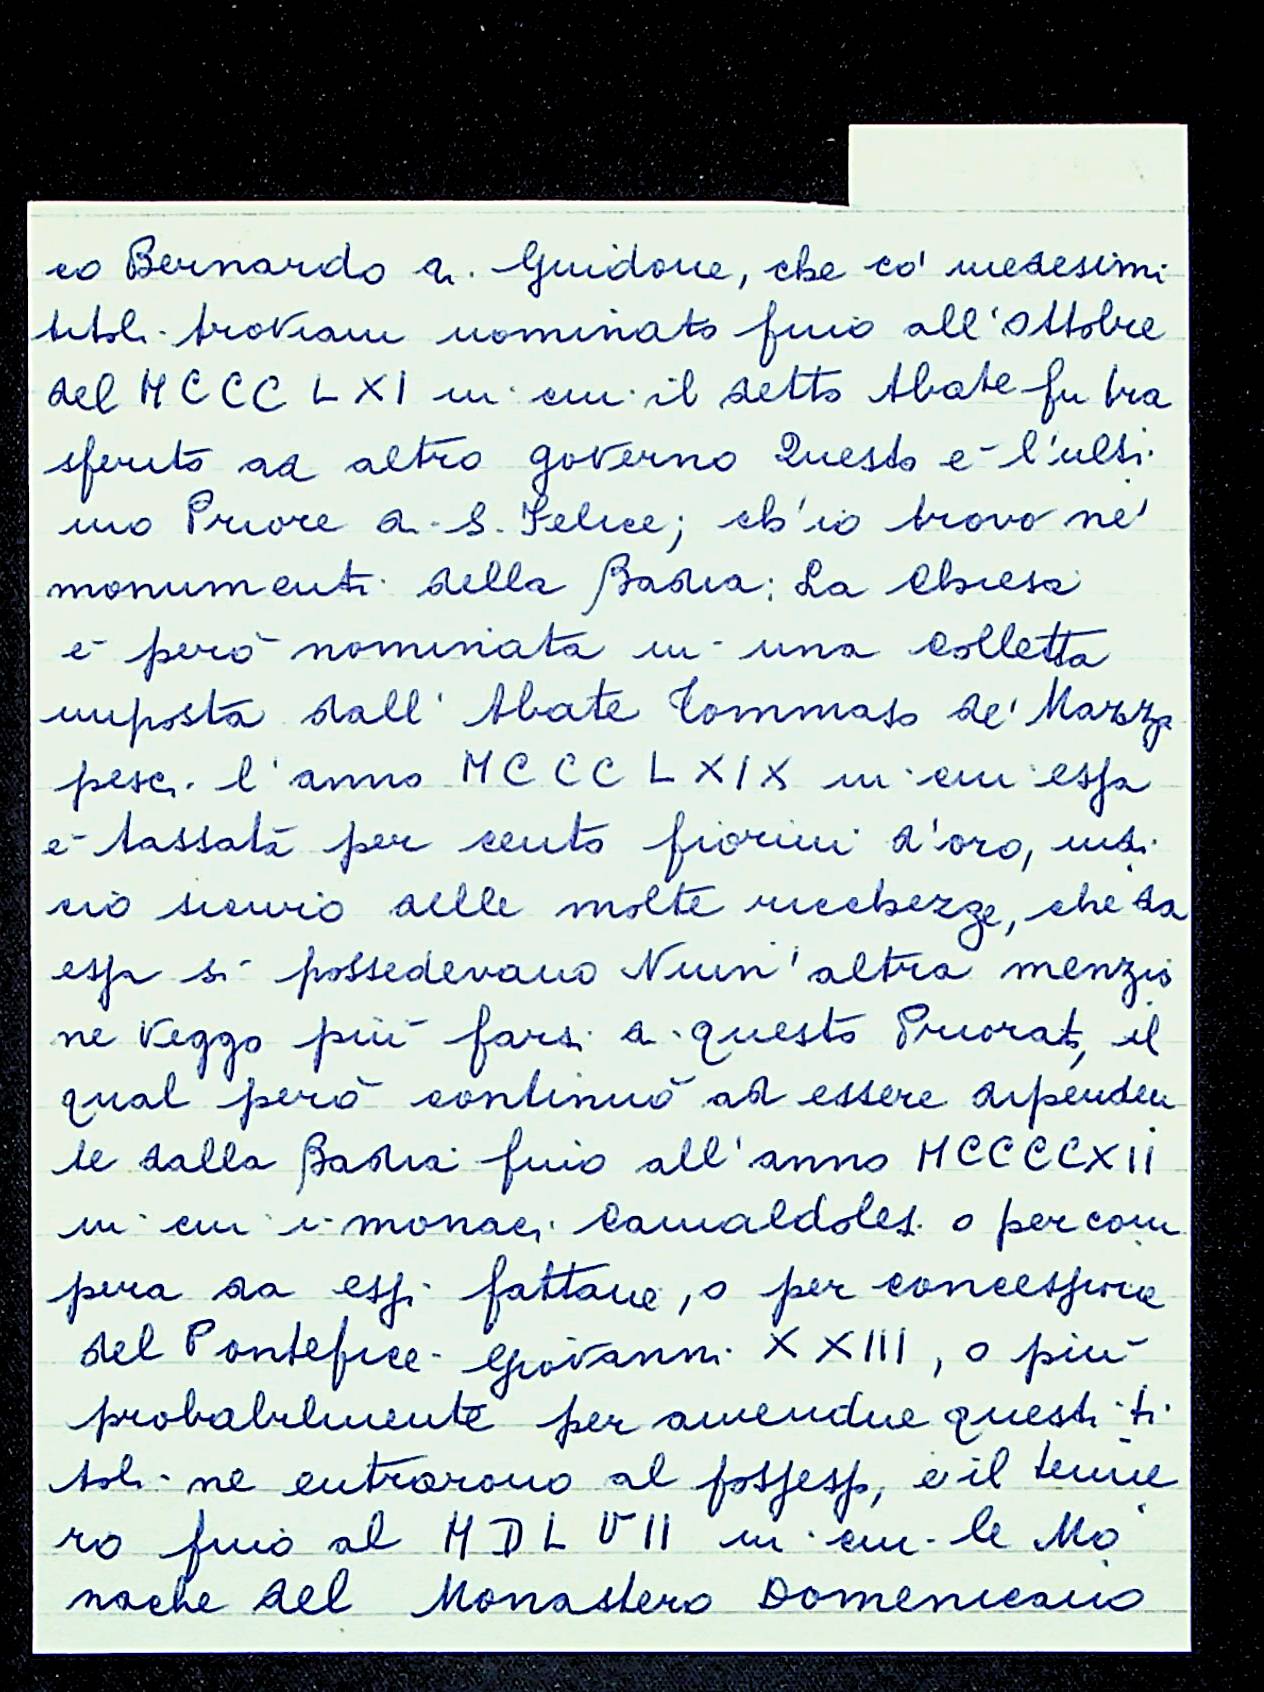 co Bernardo di Guidone, che co' medesimi
titoli troviam nominato fino all'Ottobre
del MCCCLXI in cui il detto Abate fu tra
sferito ad altro governo Questo è l'ulti
mo Priore di S. Felice; ch'io trovo ne'
monumenti della Badia: La Chiesa
è però nominata in una Colletta
imposta dall'Abate Tommaso de' Marza
pesci l'anno MCCCLXIX in cui essa
è tassata per cento fiorini d'oro, indi
cio sicuro delle molte ricchezze, che da
essa si possedevano Niun'altra menzio
ne veggo più farsi di questo Priorato, il
qual però continuò ad essere dipenden
te dalla Badia fino all'anno MCCCCXII
in cui i monaci Camaldolesi o per com
pera da essi fattane, o per concessione
del Pontefice Giovanni XXIII, o più
probabilmente per amendue questi ti
toli ne entrarono al possesso, e il tenne
ro fino al MDLVII in cui le Mo
nache del Monastero Domenicano